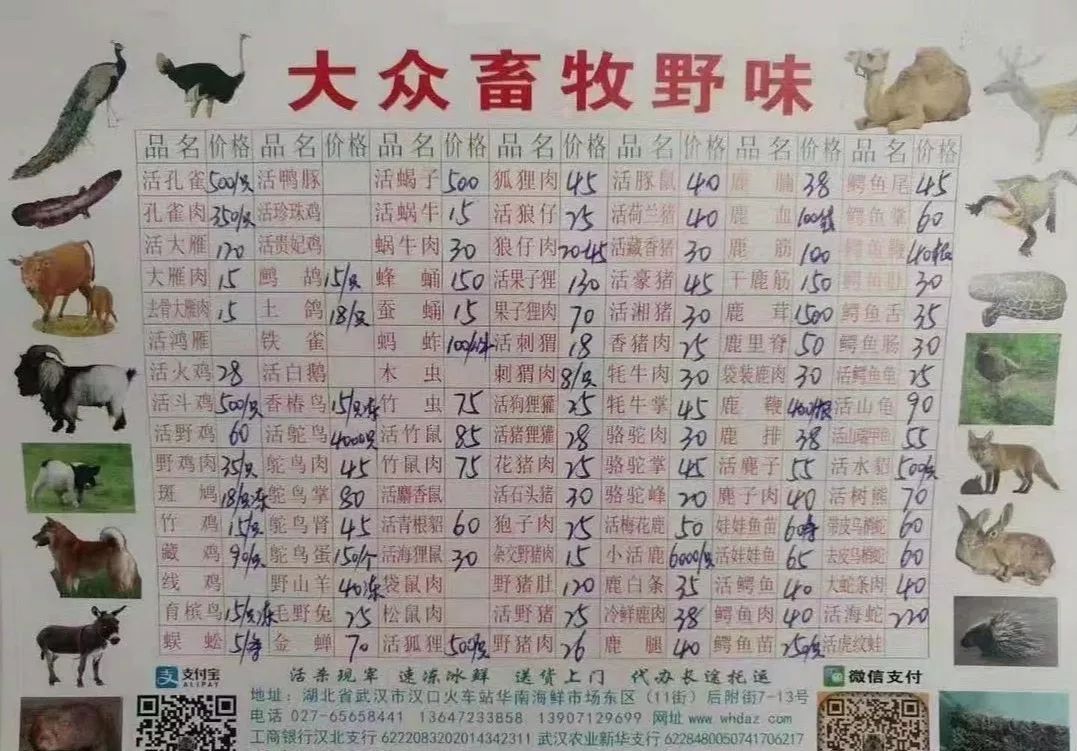 大众畜牧野味
品名 价格 品名 价格 品名 价格 品名 价格 品名 价格 品名 价格 品名 价格
活孔雀 500/只 活鸭豚 活蝎子 500 狐狸肉 45 活豚鼠 40 鹿腩 38 鳄鱼尾 45
孔雀肉 350/只 活珍珠鸡 活蜗牛 15 活狼仔 25 活荷兰猪 40 鹿血 鳄鱼掌 60
活大雁 120 活贵妃鸡 蜗牛肉 30 狼仔肉 20-45 活藏香猪 30 鹿筋 100 鳄鱼鞭
大雁肉 15 鹧鸪 15/只 蜂蛹 150 活果子狸 130 活豪猪 45 干鹿筋 150 鳄鱼肚 30
去骨大雁肉 15 土鸽 18/只 蚕蛹 15 果子狸肉 70 活湘猪 30 鹿茸 1500 鳄鱼舌 35
活鸿雁 铁雀 蚂蚱 活刺猬 18 香猪肉 25 鹿里脊 50 鳄鱼肠 30
活火鸡 28 活白鹅 木虫 刺猬肉 8/只 牦牛肉 30 袋装鹿肉 30 活鳄鱼龟 25
活斗鸡 500/只 香椿鸟 15/只冻 竹虫 75 活狗狸獾 25 牦牛掌 45 鹿鞭 活山龟 90
活野鸡 60 活鸵鸟 4000只 活竹鼠 85 活猪狸獾 28 骆驼肉 30 鹿排 38 55
野鸡肉 35/只 鸵鸟肉 45 竹鼠肉 75 花猪肉 25 骆驼掌 45 活麂子 55 活水貂 500/只
斑鸠 18/只冻 鸵鸟掌 80 活麝香鼠 活石头猪 30 骆驼峰 20 麂子肉 40 活树熊 70
竹鸡 15/只 鸵鸟肾 45 活青根貂 60 狍子肉 25 活梅花鹿 50 娃娃鱼苗 带皮乌梢蛇 60
藏鸡 90/只 鸵鸟蛋 150/个 活海狸鼠 30 杂交野猪肉 15 小活鹿 6000/只 活娃娃鱼 65 去皮乌梢蛇 60
线鸡 野山羊 40冻 袋鼠肉 野猪肚 120 鹿白条 35 活鳄鱼 40 大蛇条肉 40
育槟鸟 15/只冻 毛野兔 25 松鼠肉 活野猪 25 冷鲜鹿肉 38 鳄鱼肉 40 活海蛇 220
蜈蚣 金蝉 70 活狐狸 500/只 野猪肉 26 鹿腿 40 鳄鱼苗 250/只 活虎纹蛙
支付宝 ALIPAY 活杀现宰 速冻冰鲜 送货上门 代办长途托运 微信支付
地址：湖北省武汉市汉口火车站华南海鲜市场东区（11街）后附街7-13号
电话 027-65658441 13647233858 13907129699 网址 www.whdaz.com
工商银行汉北支行 6222083202014342311 武汉农业新华支行 6228480050741706217